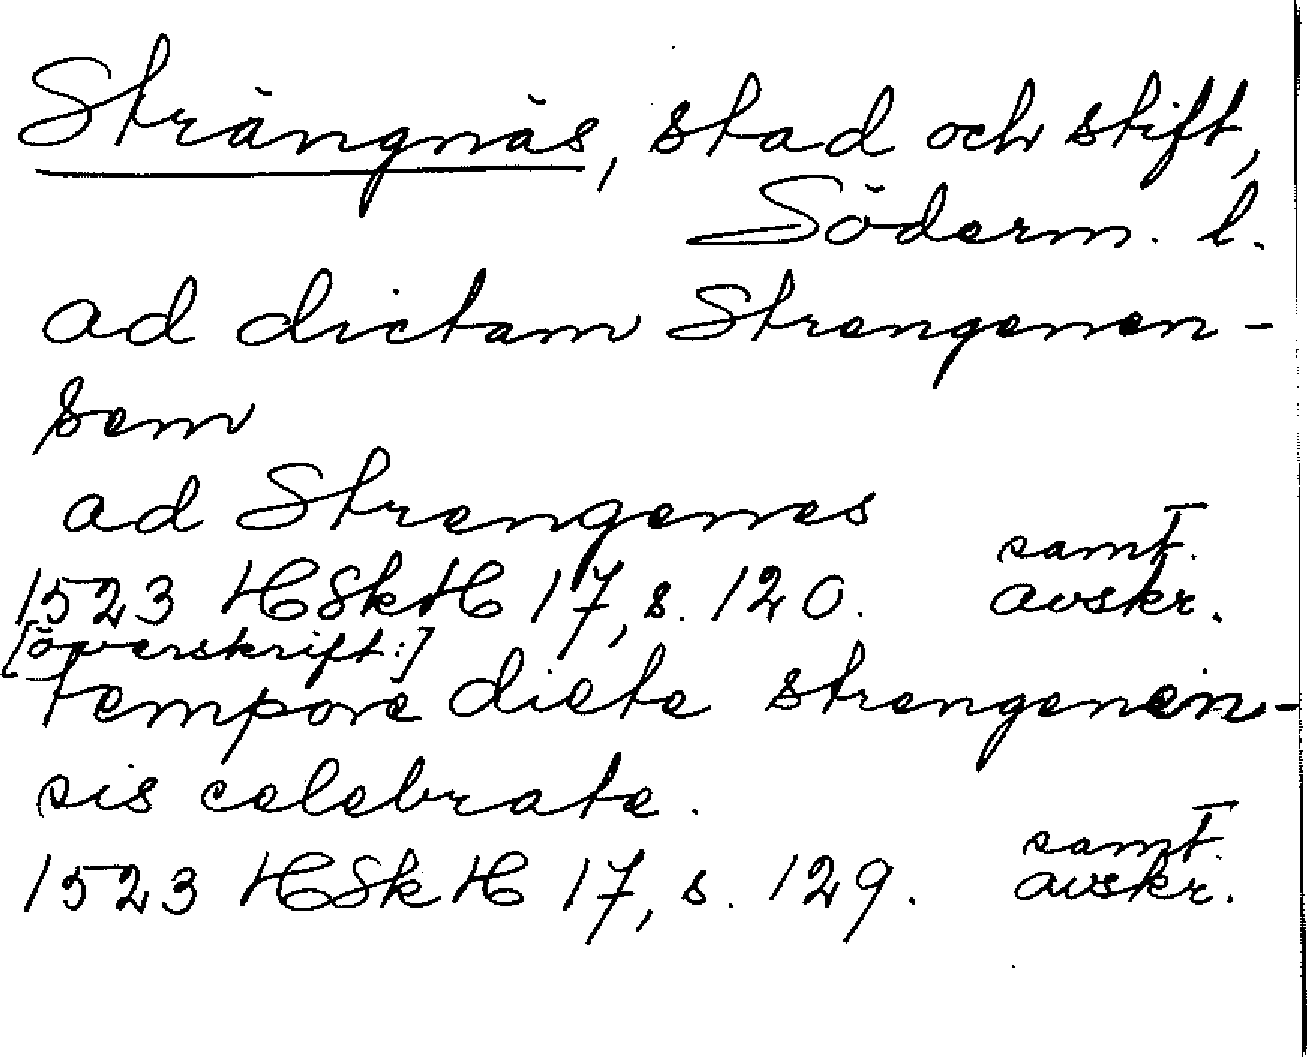 Strängnäs, stad och stift,
Söderm. l.
ad dictam Strengenen-
sem
ad Strengenes
samt.
1523 HSkH 17, s. 120. avskr.
[överskrift:]
tempore diete strengenen-
sis celebrate.
samt.
1523 HSkH 17, s. 129. avskr.